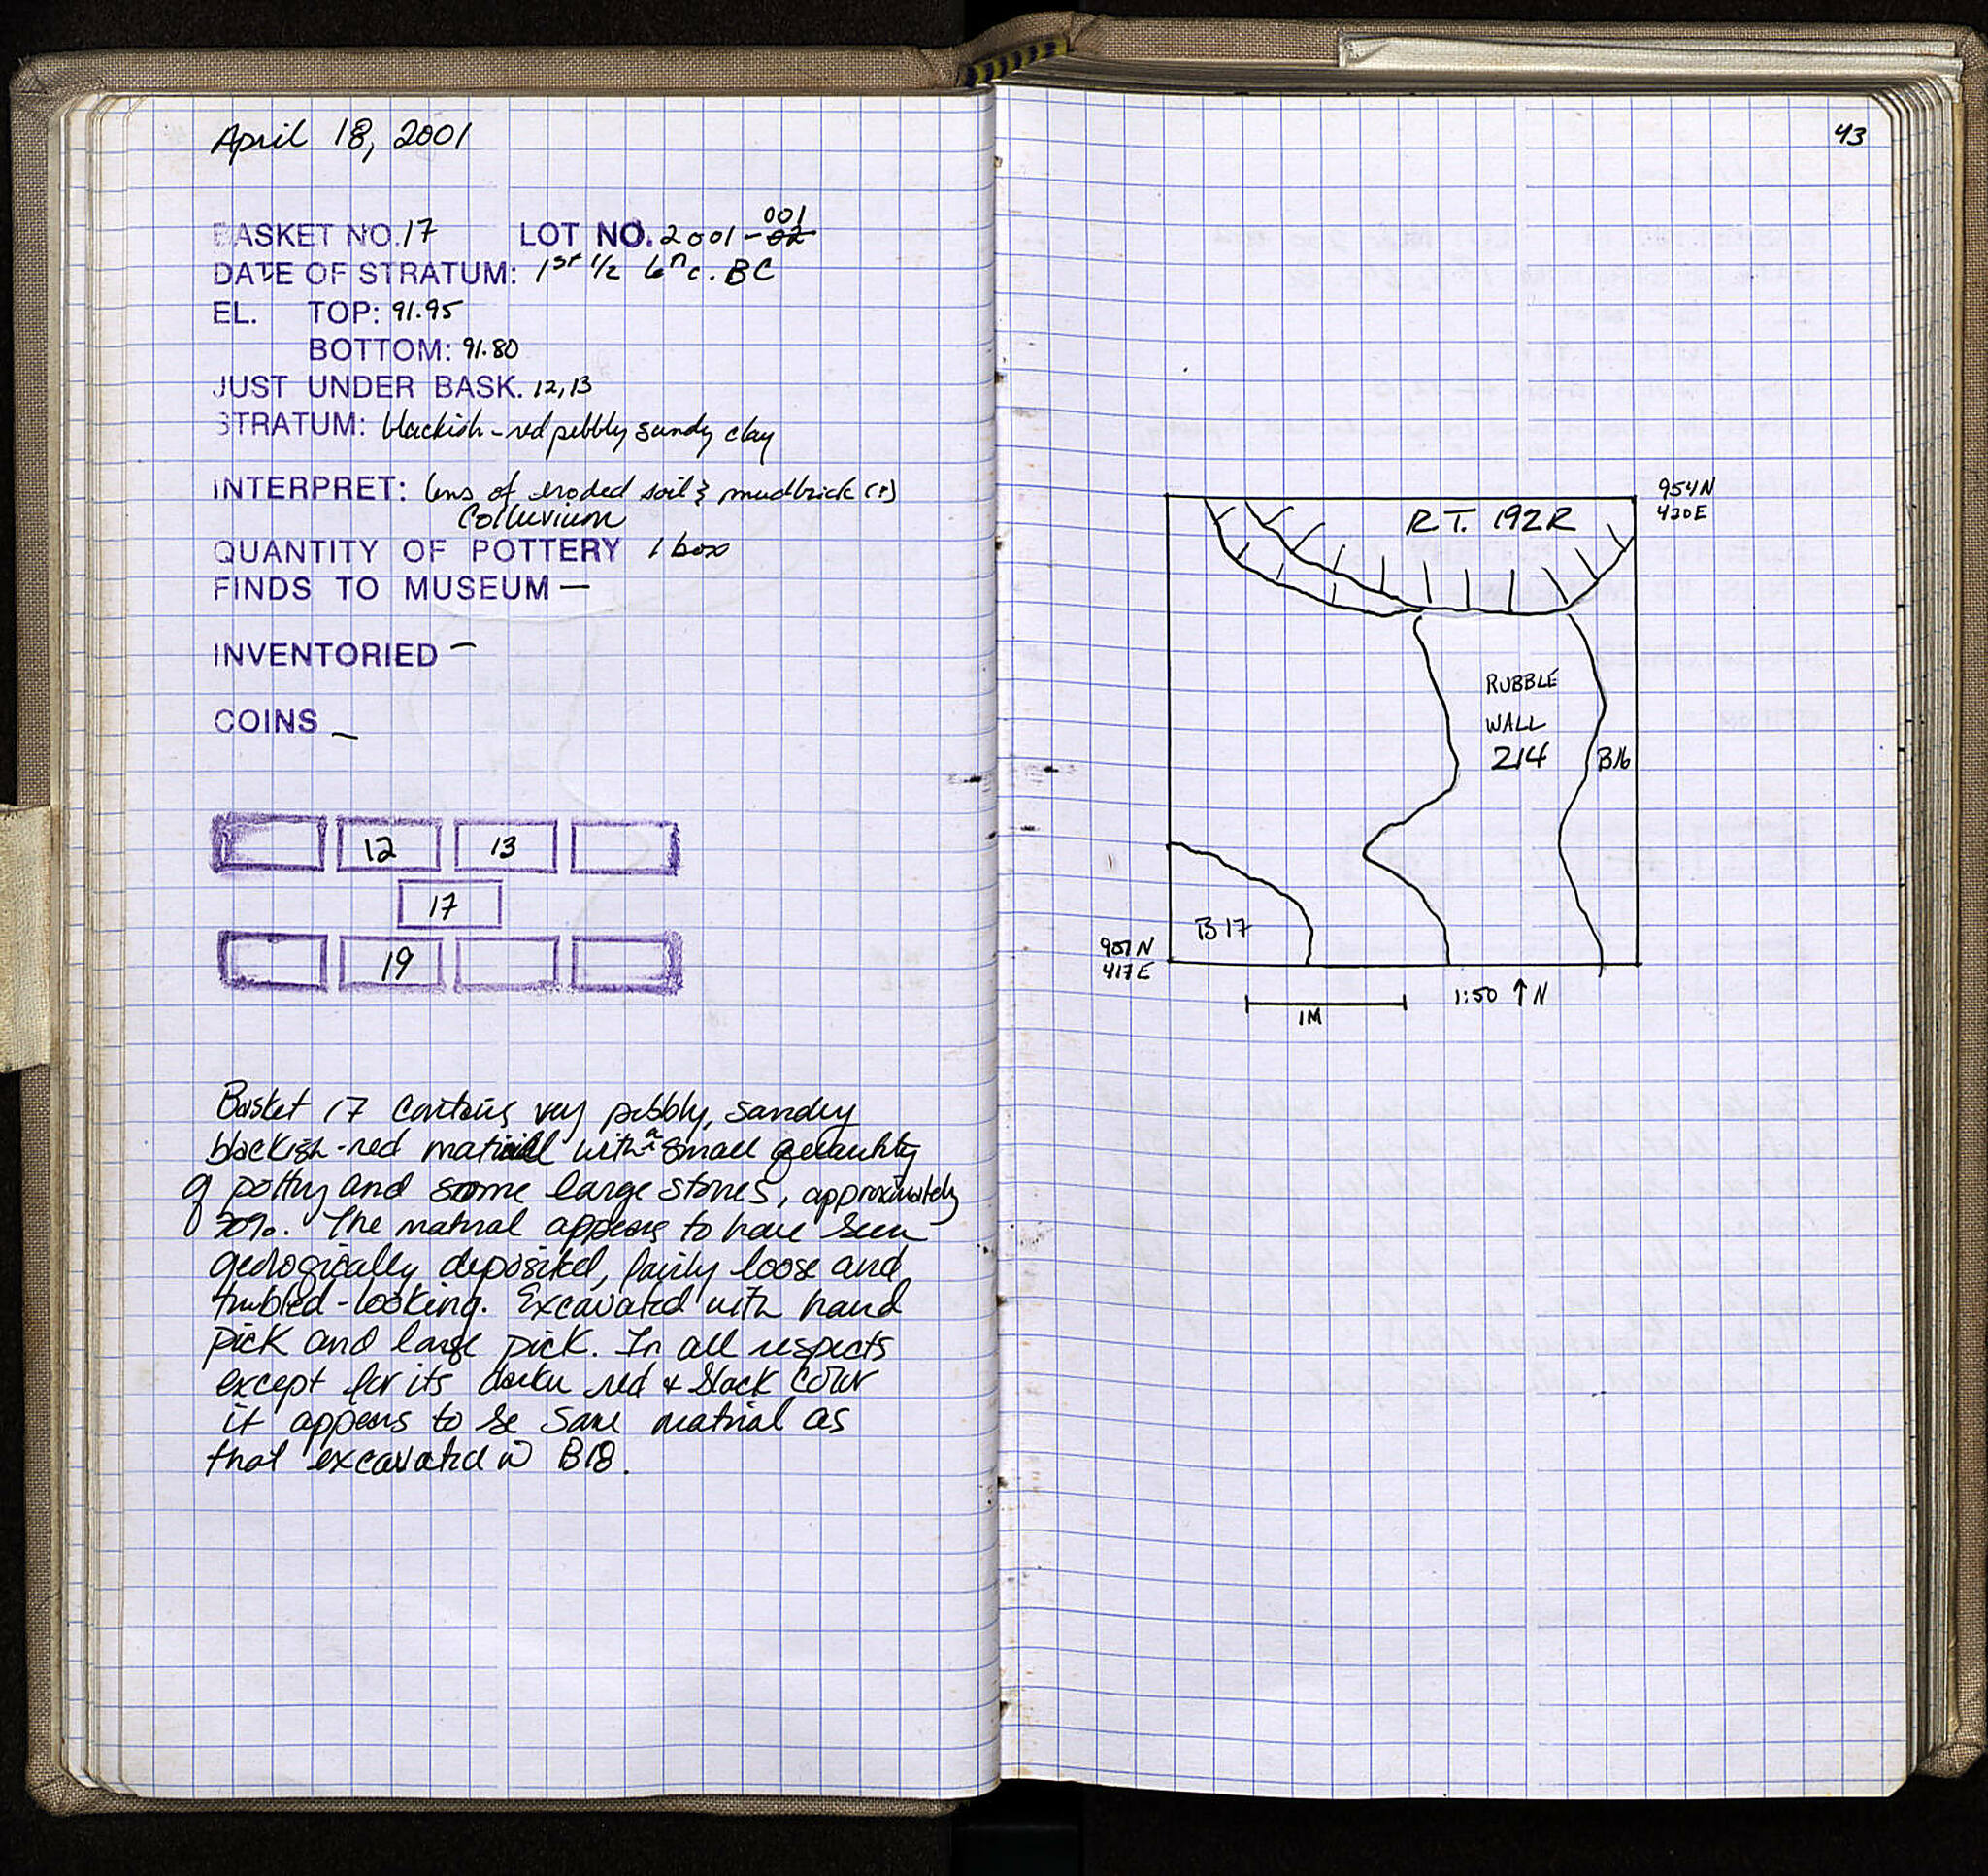 April 18, 2001
BASKET NO. 17 LOT NO. 2001-02 001
DATE OF STRATUM: 1st 1/2 6th c. BC
EL. TOP: 91.95
BOTTOM: 91.80
JUST UNDER BASK. 12,13
STRATUM: blackish-red pebbly sandy clay
INTERPRET: lens of eroded soil & mudbrick (?)
Colluvium
QUANTITY OF POTTERY 1 box
FINDS TO MUSEUM —
INVENTORIED —
COINS —
12 13
17
19
Basket 17 contains very pebbly, sandy
blackish-red material with a small quantity
of pottery and some large stones, approximately
The material appears to have been
geologically deposited, fairly loose and
tumbled-looking. Excavated with hand
pick and large pick. In all respects
except for its darker red & black color
it appears to be same material as
that excavated in B18.
43
954N
420E
R.T. 192R
RUBBLE
WALL
214
B16
B17
951N
417E
1:50 ↑N
1M